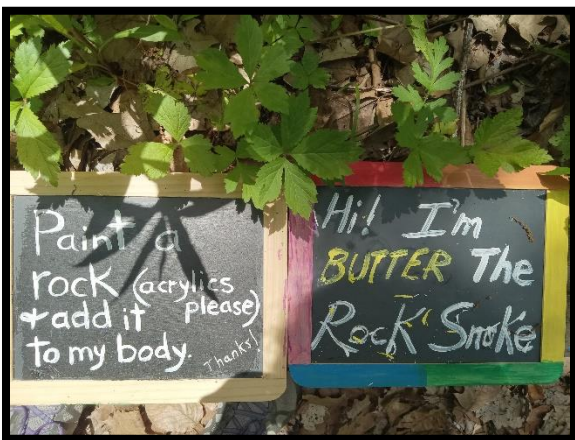 Paint a
rock (acrylics
+ add it please)
to my body.
Thanks!
Hi! I'm
BUTTER The
Rock Snake